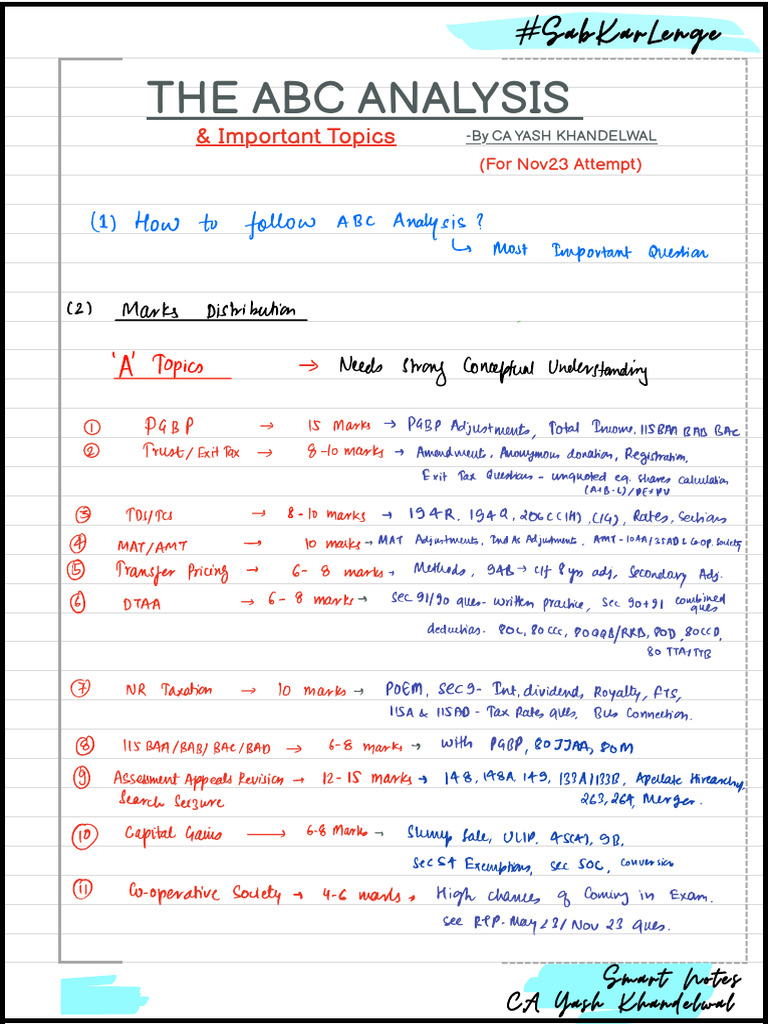 #SabKarLenge
THE ABC ANALYSIS
& Important Topics
-By CA YASH KHANDELWAL
(For Nov23 Attempt)
(1) How to follow ABC Analysis?
↳ Most Important Question
(2) Marks Distribution
'A' Topics → Needs Strong Conceptual Understanding
① PGBP → 15 Marks → PGBP Adjustments, Total Income, 115BAA BAB BAC
② Trust/Exit Tax → 8-10 marks → Amendments, Anonymous donation, Registration,
Exit Tax Questions - unquoted eq. shares calculation
(A+B-L)/PE×PV
③ TDS/TCS → 8-10 marks → 194R, 194Q, 206CC(1H), (1G), Rates, Sections
④ MAT/AMT → 10 marks → MAT Adjustments, Ind As Adjustments, AMT-10AA/35AD & CO.OP. Society
⑤ Transfer Pricing → 6-8 marks → Methods, 94B → c/f 8 yrs adj, Secondary Adj.
⑥ DTAA → 6-8 marks → Sec 91/90 ques - written practice, Sec 90+91 combined ques
deduction - 80C, 80CCC, 80QQB/RRB, 80D, 80CCD,
80 TTA/TTB
⑦ NR Taxation → 10 marks → POEM, Sec 9 - Int, dividend, Royalty, FTS,
115A & 115AD - Tax Rates ques, Bus Connection.
⑧ 115BAA/BAB/BAC/BAD → 6-8 marks → with PGBP, 80JJAA, 80M
⑨ Assessment Appeals Revision → 12-15 marks → 148, 148A, 149, 133A/133B, Apellate Hirearchy,
Search Seizure 263, 264, Merger.
⑩ Capital Gains → 6-8 Marks → Slump Sale, ULIP, 45(4), 9B,
Sec 54 Exemptions, Sec 50C, conversion
⑪ Co-operative Society → 4-6 marks → High chances of Coming in Exam.
see RTP-May 23/Nov 23 ques.
Smart Notes
CA Yash Khandelwal